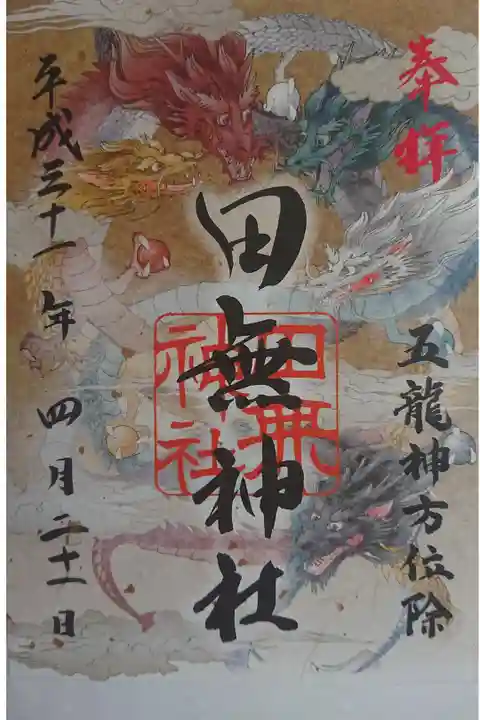 奉拝
五龍神方位除
田無神社
田無
神社
平成三十一年四月二十一日